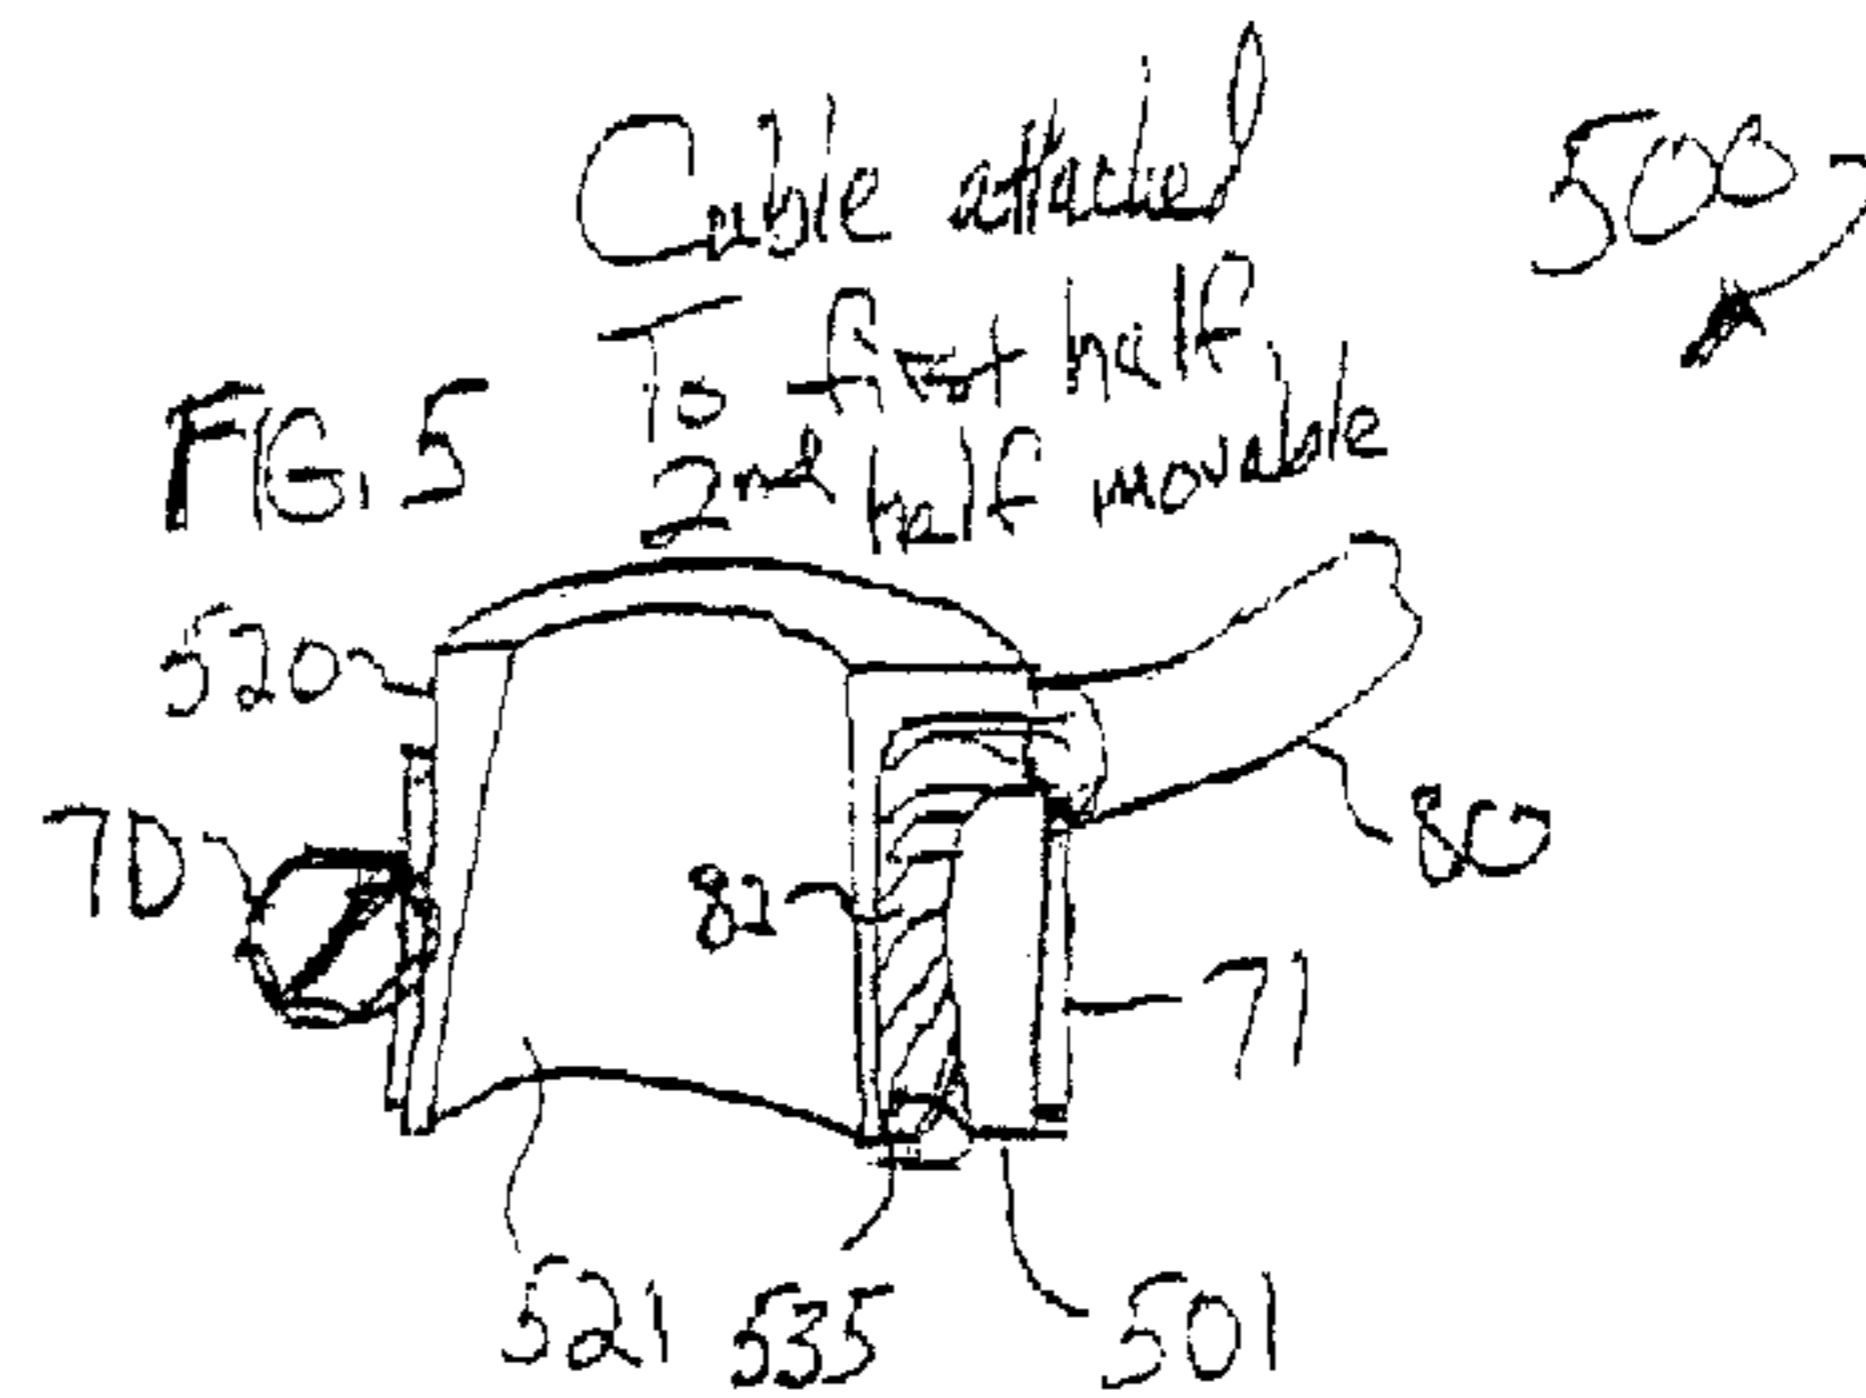 Cable attached
500
To first half
FIG. 5
2nd half movable
520
70
80
82
71
521
535
501